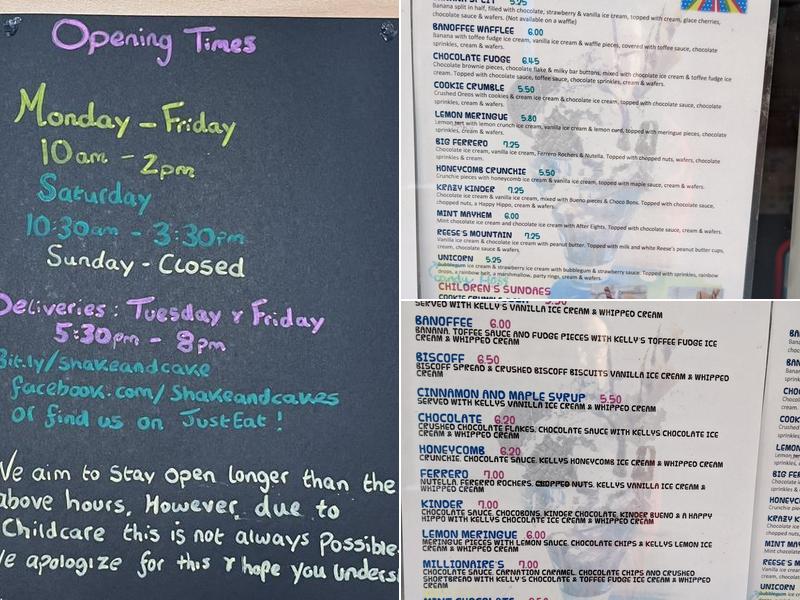 Opening Times
Monday - Friday
10am - 2pm
Saturday
10:30am - 3:30pm
Sunday - Closed
Deliveries : Tuesday & Friday
5:30pm - 8pm
Bit.ly/Shakeandcake
facebook.com/Shakeandcakes
or find us on JustEat !
We aim to stay open longer than the
above hours. However due to
Childcare this is not always possible.
We apologize for this & hope you unders
BANANA SPLIT 5.25
Banana split in half, filled with chocolate, strawberry & vanilla ice cream, topped with cream, glace cherries,
chocolate sauce & wafers. (Not available on a waffle)
BANOFFEE WAFFLEE 6.00
Banana with toffee fudge ice cream, vanilla ice cream & waffle pieces, covered with toffee sauce, chocolate
sprinkles, cream & wafers.
CHOCOLATE FUDGE 6.45
Chocolate brownie pieces, chocolate flake & milky bar buttons, mixed with chocolate ice cream & toffee fudge ice
cream. Topped with chocolate sauce, toffee sauce, chocolate sprinkles, cream & wafers.
COOKIE CRUMBLE 5.50
Crushed Oreos with cookies & cream ice cream & chocolate ice cream, topped with chocolate sauce, chocolate
sprinkles, cream & wafers.
LEMON MERINGUE 5.80
Lemon tart with lemon crunch ice cream, vanilla ice cream & lemon curd, topped with meringue pieces, chocolate
sprinkles, cream & wafers.
BIG FERRERO 7.25
Chocolate ice cream, vanilla ice cream, Ferrero Rochers & Nutella. Topped with chopped nuts, wafers, chocolate
sprinkles & cream.
HONEYCOMB CRUNCHIE 5.50
Crunchie pieces with honeycomb ice cream & vanilla ice cream, topped with maple sauce, cream & wafers.
KRAZY KINDER 7.25
Chocolate ice cream & vanilla ice cream, mixed with Bueno pieces & Choco Bons. Topped with chocolate sauce,
chopped nuts, a Happy Hippo, cream & wafers.
MINT MAYHEM 6.00
Mint chocolate ice cream and chocolate ice cream with After Eights. Topped with chocolate sauce, cream & wafers.
REESE'S MOUNTAIN 7.25
Vanilla ice cream & chocolate ice cream with peanut butter. Topped with milk and white Reese's peanut butter cups,
cream, chocolate sauce & wafers.
UNICORN 5.25
Bubblegum ice cream & strawberry ice cream with bubblegum & strawberry sauce. Topped with sprinkles, rainbow
drops, a rainbow belt, a marshmallow, party rings, cream & wafers.
Candy Floss
CHILDREN'S SUNDAES
SERVED WITH KELLY'S VANILLA ICE CREAM & WHIPPED CREAM
BANOFFEE 6.00
BANANA, TOFFEE SAUCE AND FUDGE PIECES WITH KELLY'S TOFFEE FUDGE ICE
CREAM & WHIPPED CREAM
BISCOFF 6.50
BISCOFF SPREAD & CRUSHED BISCOFF BISCUITS VANILLA ICE CREAM & WHIPPED
CREAM
CINNAMON AND MAPLE SYRUP 5.50
SERVED WITH KELLYS VANILLA ICE CREAM & WHIPPED CREAM
CHOCOLATE 6.20
CRUSHED CHOCOLATE FLAKES, CHOCOLATE SAUCE WITH KELLYS CHOCOLATE ICE
CREAM & WHIPPED CREAM
HONEYCOMB 6.20
CRUNCHIE, CHOCOLATE SAUCE, KELLYS HONEYCOMB ICE CREAM & WHIPPED CREAM
FERRERO 7.00
NUTELLA, FERRERO ROCHERS, CHOPPED NUTS, KELLYS VANILLA ICE CREAM &
WHIPPED CREAM
KINDER 7.00
CHOCOLATE SAUCE, CHOCOBONS, KINDER CHOCOLATE, KINDER BUENO & A HAPPY
HIPPO WITH KELLYS CHOCOLATE ICE CREAM & WHIPPED CREAM
LEMON MERINGUE 6.00
MERINGUE PIECES WITH LEMON SAUCE, CHOCOLATE CHIPS & KELLYS LEMON ICE
CREAM & WHIPPED CREAM
MILLIONAIRE'S 7.00
CHOCOLATE SAUCE, CARNATION CARAMEL, CHOCOLATE CHIPS AND CRUSHED
SHORTBREAD WITH KELLY'S CHOCOLATE & TOFFEE FUDGE ICE CREAM & WHIPPED
CREAM